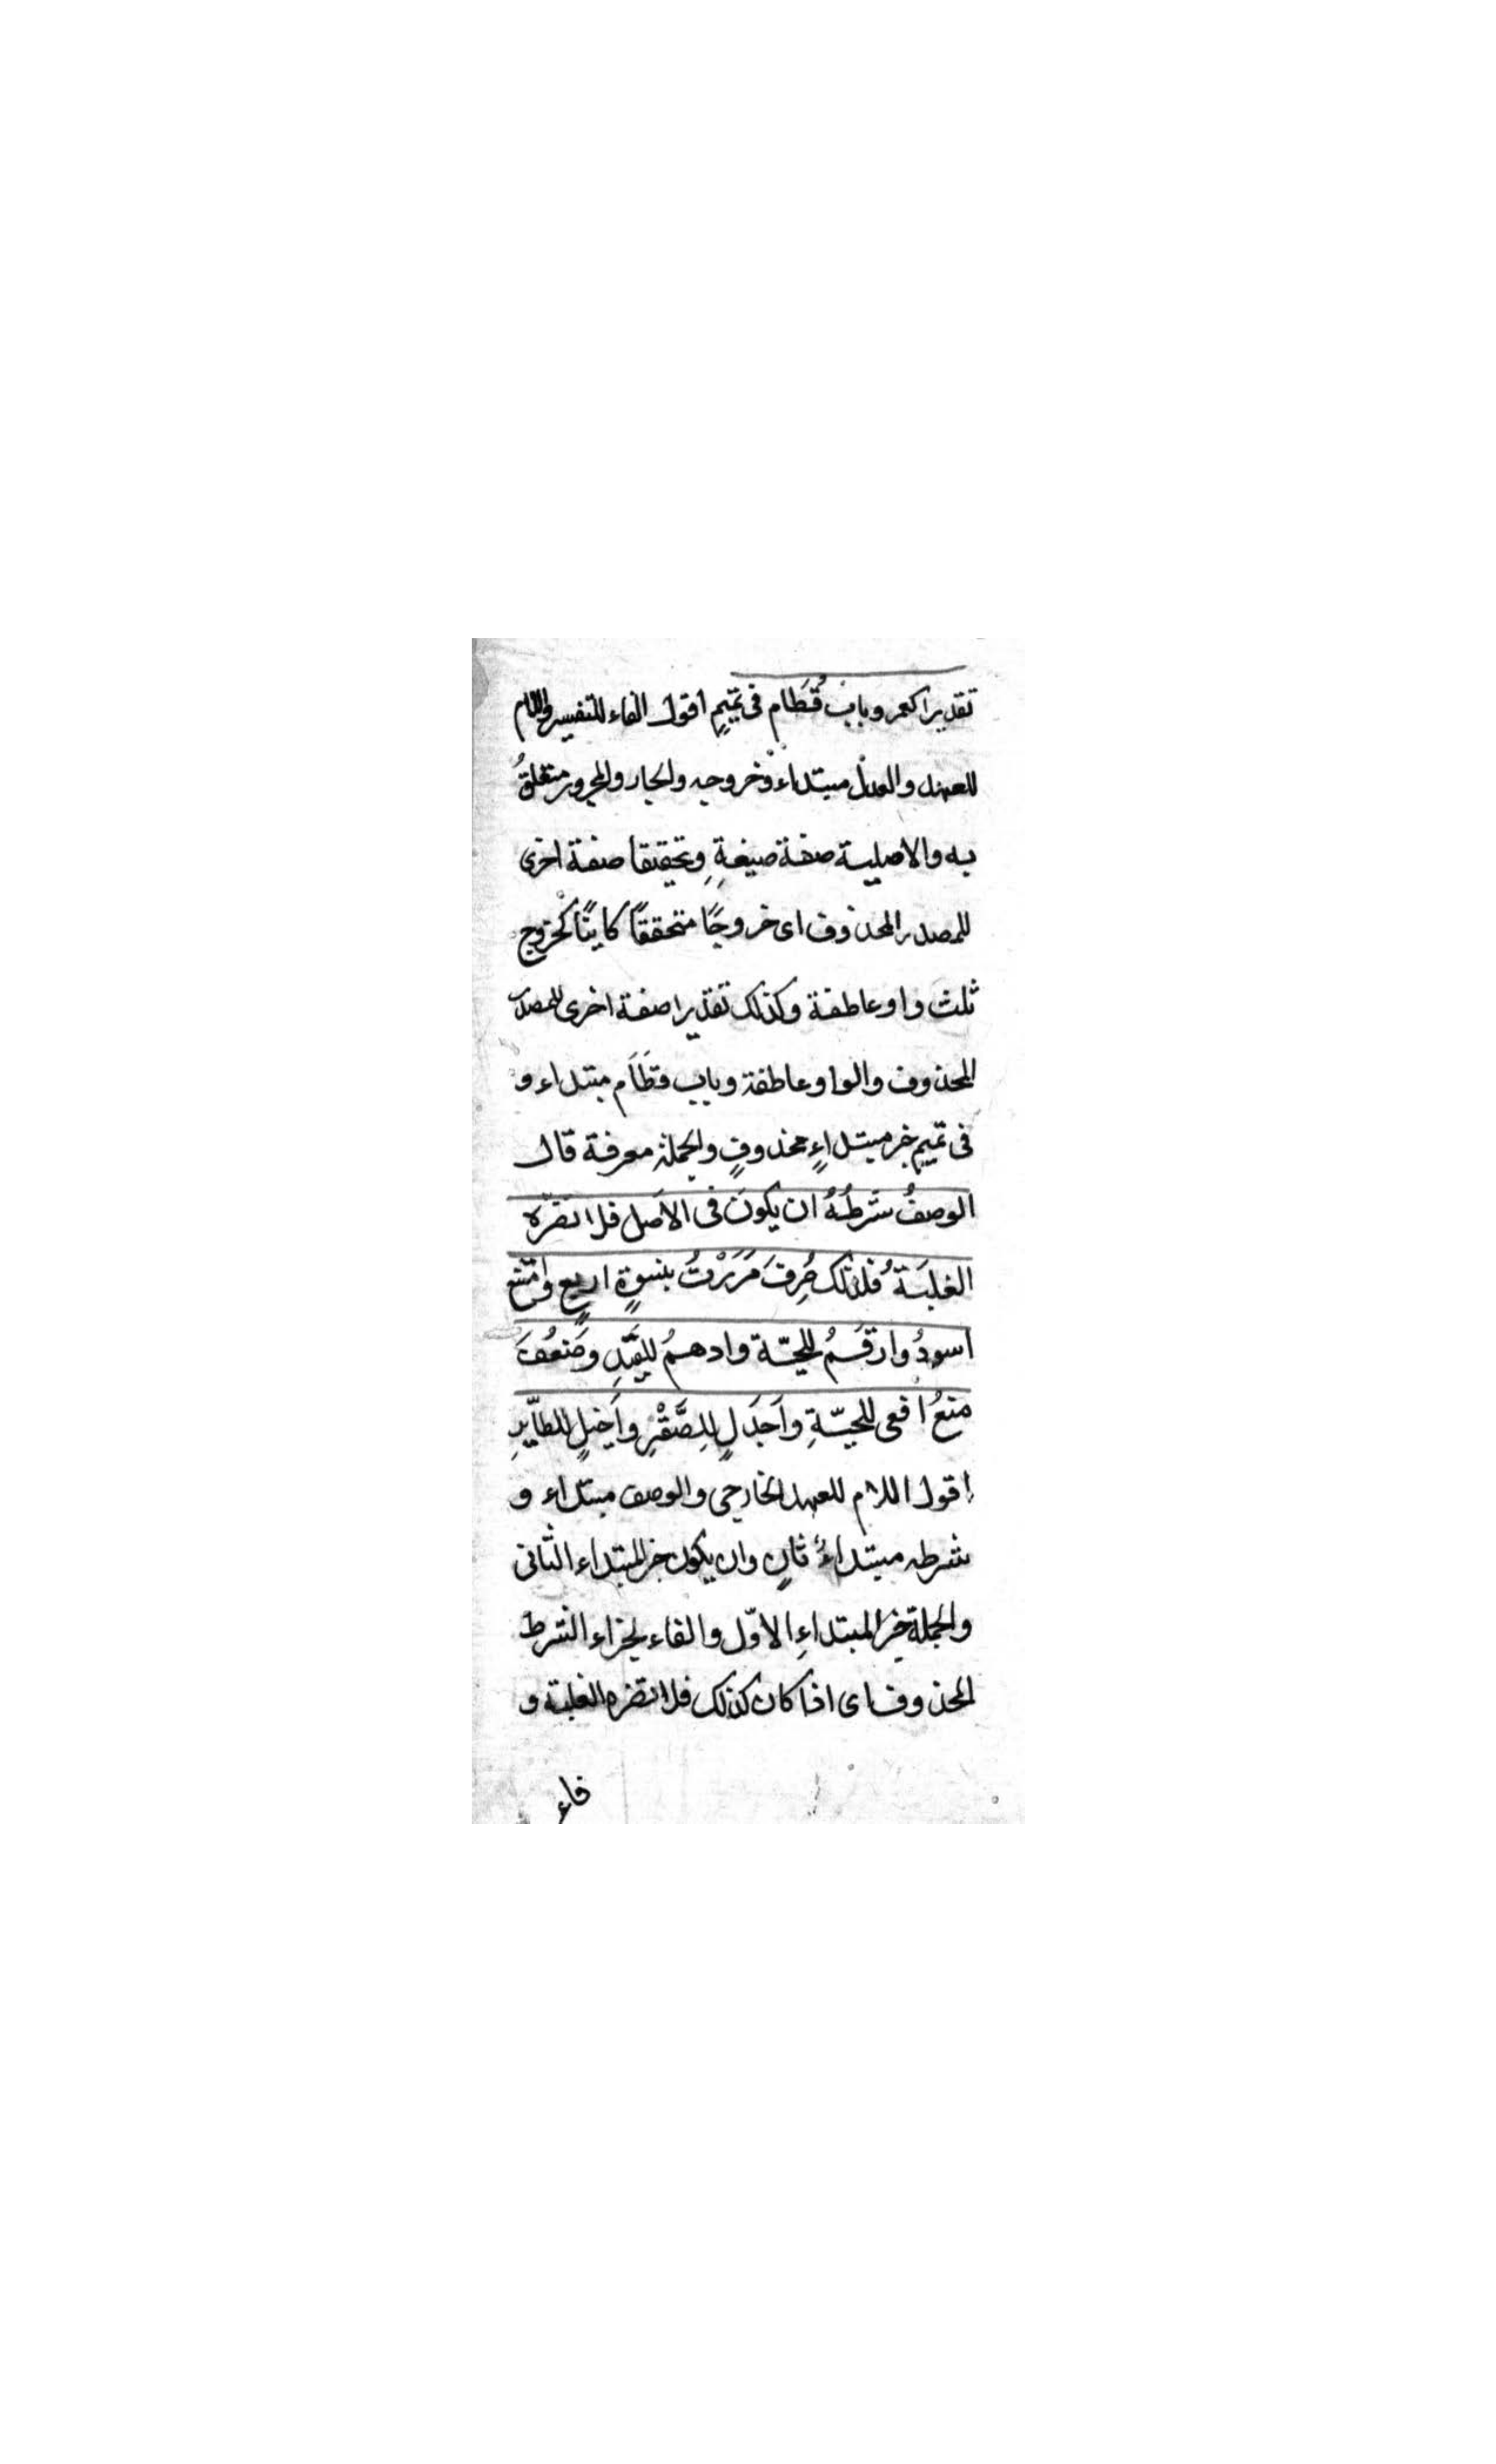 تقديرا كعمر وباب قُطَام فى تميمٍ اقول الفاء للتفسير واللام
للعهد والعدل مبتداء وخروجه والجار والمجرور متعلقُ
به والاصلية صفة صيغةِ وتحقيقا صفة اخرى
للمصدر المحذوف اى خروجًا متحققًا كاينًا كخروج
ثلث واو عاطفة وكذلك تقديرا صفة اخرى للمصدر
المحذوف والواو عاطفة وباب قطَام مبتداء و
فى تميم خبر مبتداءٍ محذوفٍ والجملة معرفة قال
الوصفُ شَرطُهُ ان يكونَ فى الاَصل فلا تضرّه
الغلبَةُ فلذلك صُرِفَ مَرَرْتُ بنسوةٍ اربعٍ وامتنع
اسودُ وارقَمُ للحيّة وادهمُ للقَيْدِ وضَعُفَ
منعُ افعى للحيّةِ واَجدَلٍ للِصَّقْرِ واَخيلٍ للطاّيرِ
اقول اللام للعهد الخارجى والوصف مبتداء و
شرطه مبتداءُ ثانٍ وان يكون خبر المبتداء الثانى
والجملة خبر المبتداءِ الاوّل والفاء لجزاء الشرط
المحذوف اى اذا كان كذلك فلا تضره الغلبة و
فاء